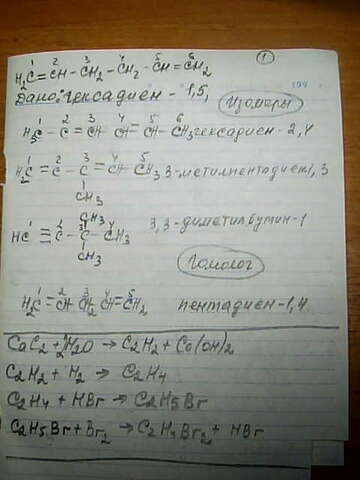 1
H₂C¹ = CH² - CH₂³ - CH₂⁴ - CH⁵ = CH₂⁶
Дано: гексадиен - 1,5,
Изомеры
H₃C¹ - C² = CH³ - CH⁴ = CH⁵ - CH₃⁶ гексадиен - 2,4
H₂C¹ = C² - C³ = CH⁴ - CH₃⁵ 3-метилпентадиен 1,3
CH₃
CH₃
HC¹ ≡ C² - C³ - CH₃⁴ 3,3-диметилбутин-1
CH₃
Гомолог
H₂C¹ = CH² CH₂³ CH⁴ = CH₂⁵ пентадиен - 1,4
CaC₂ + 2H₂O → C₂H₂ + Ca(OH)₂
C₂H₂ + H₂ → C₂H₄
C₂H₄ + HBr → C₂H₅Br
C₂H₅Br + Br₂ → C₂H₄Br₂ + HBr